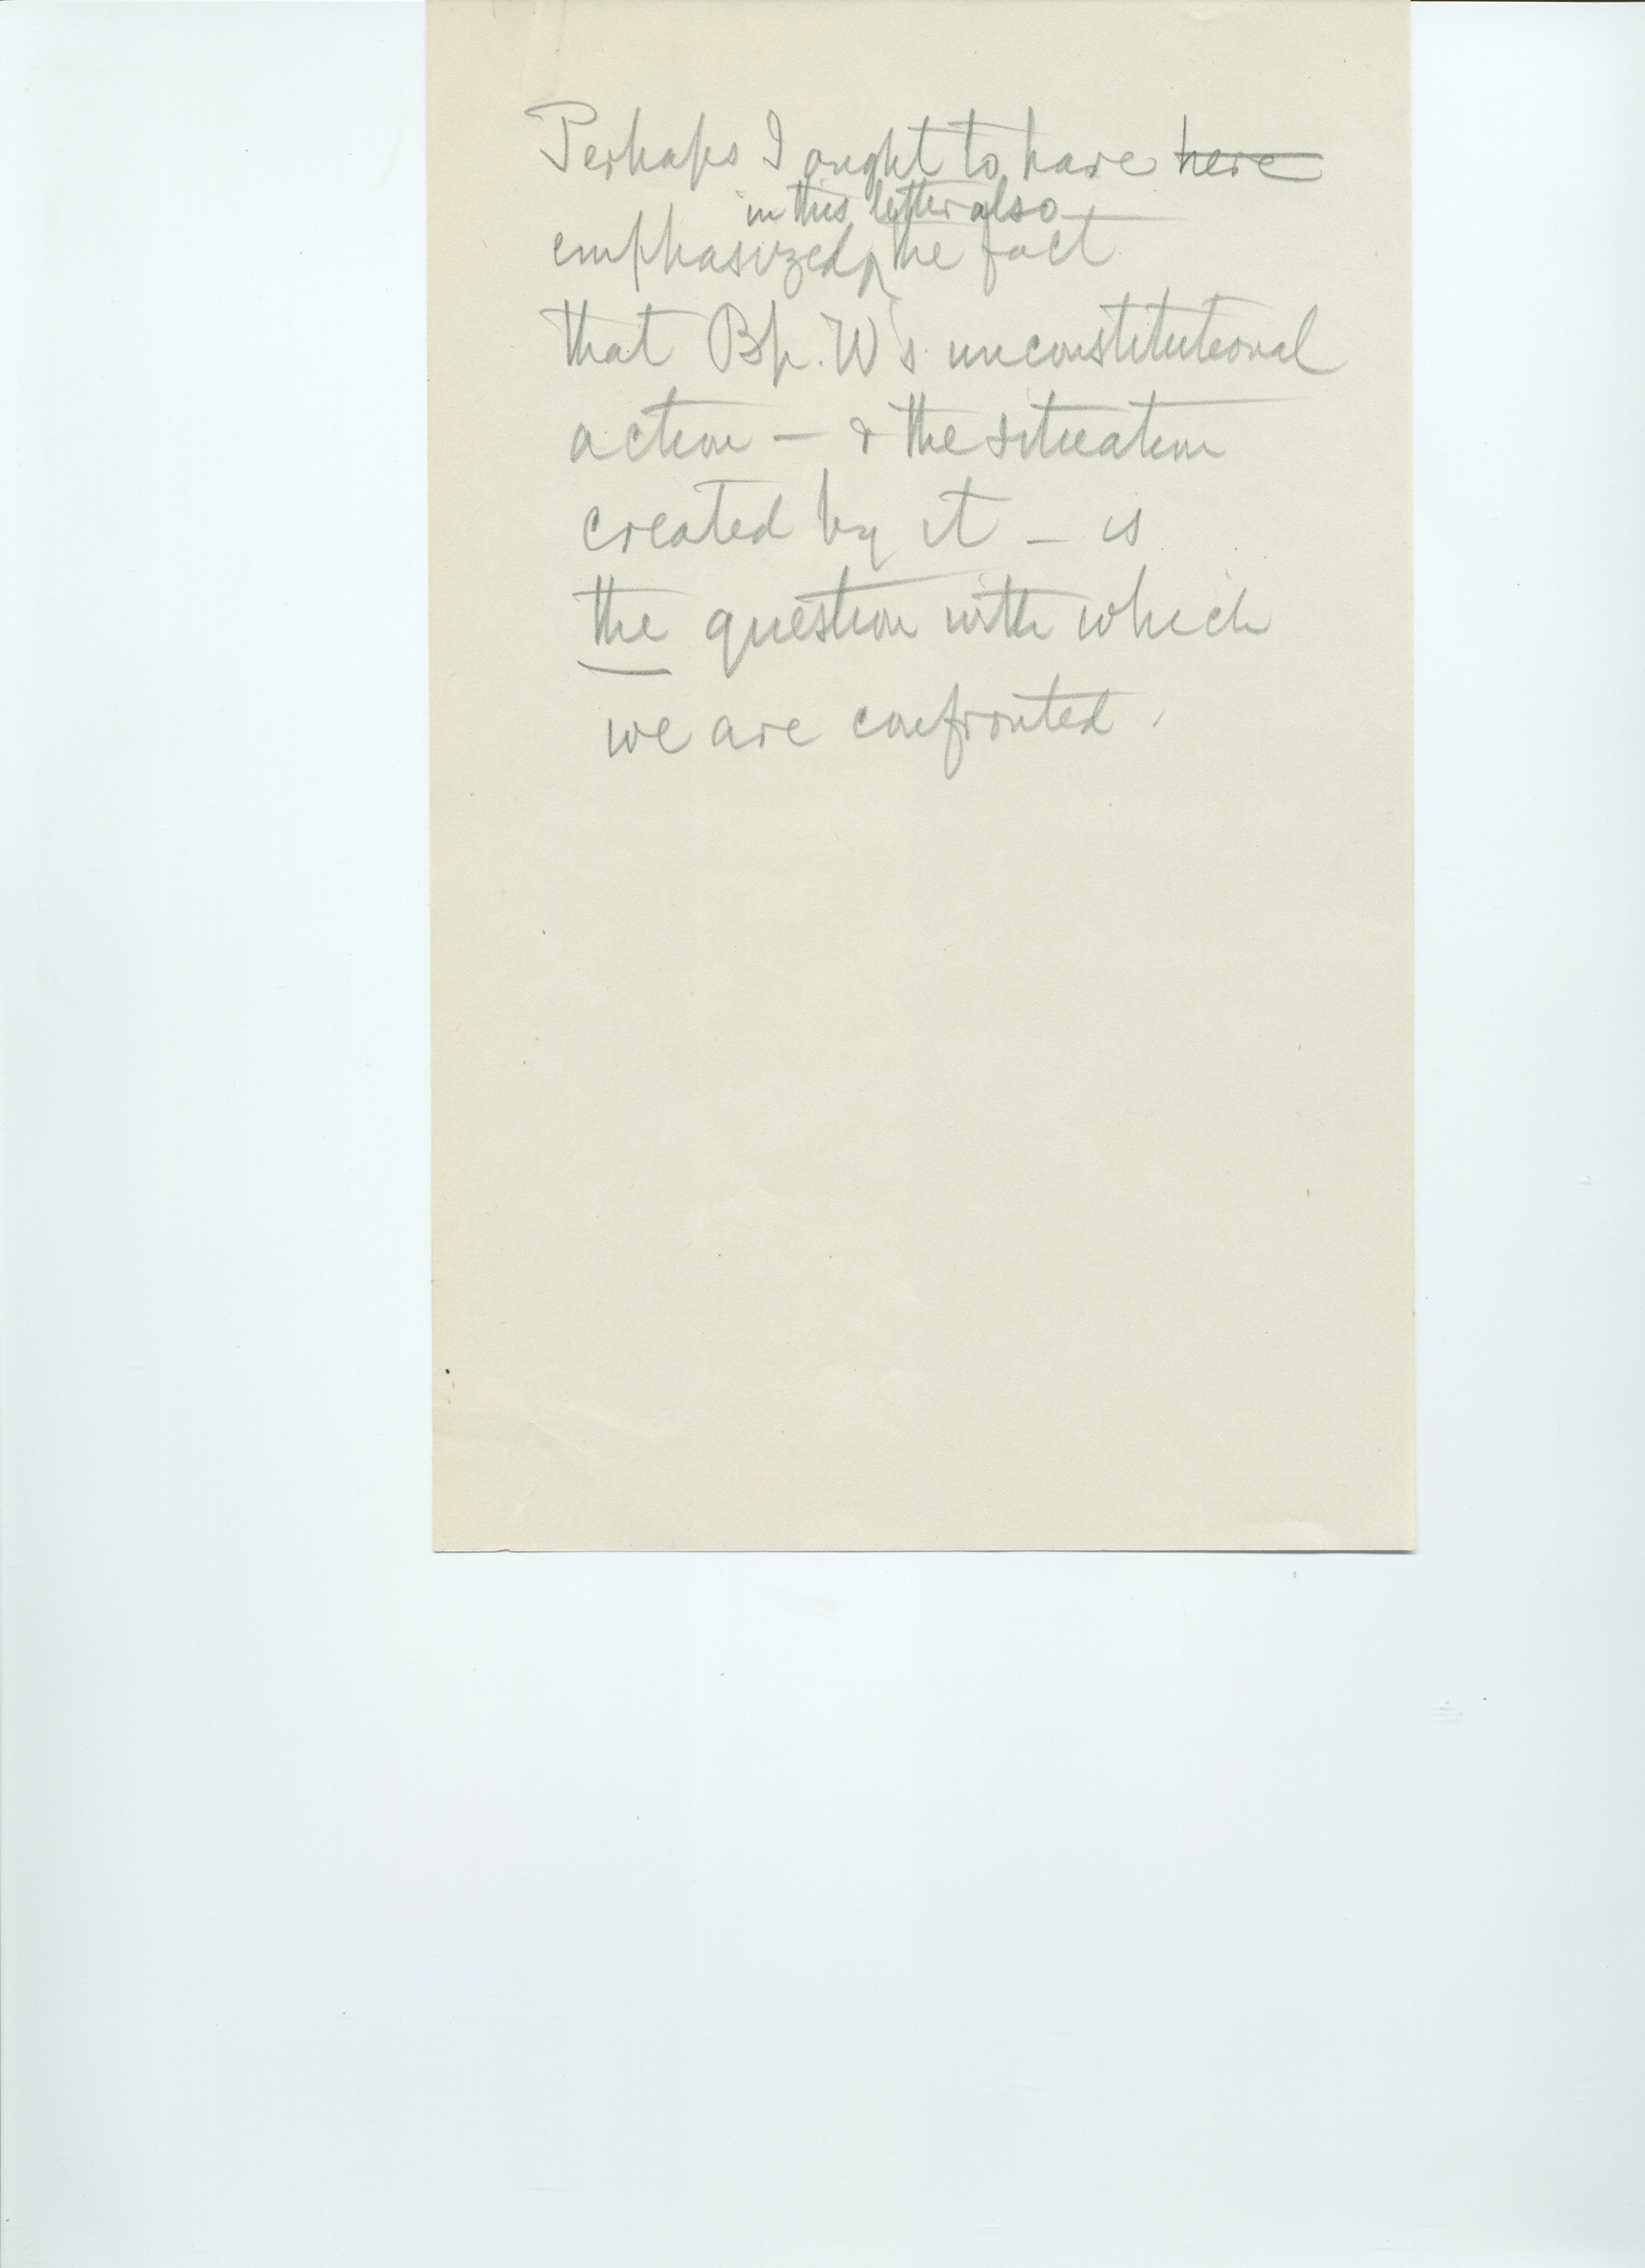 Perhaps I ought to have here
in this letter also
emphasized the fact
that Bp. W's unconstitutional
action — & the situation
created by it — is
the question with which
we are confronted.